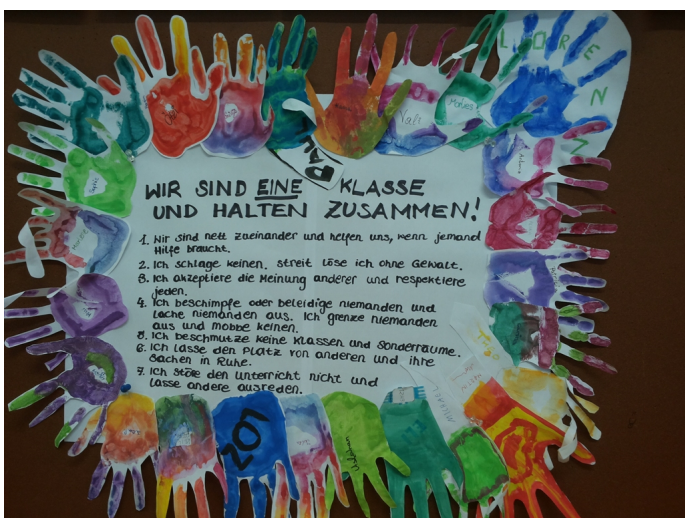 LOREN
Vali
Marlies
PAUL
WIR SIND EINE KLASSE
UND HALTEN ZUSAMMEN!
1. Wir sind nett zueinander und helfen uns, wenn jemand
Hilfe braucht.
2. Ich schlage keinen. streit löse ich ohne Gewalt.
3. Ich akzeptiere die Meinung anderer und respektiere
jeden.
4. Ich beschimpfe oder beleidige niemanden und
lache niemanden aus. Ich grenze niemanden
aus und mobbe keinen.
5. Ich beschmutze keine Klassen und Sonderräume.
6. Ich lasse den Platz von anderen und ihre
Sachen in Ruhe.
7. Ich störe den Unterricht nicht und
lasse andere ausreden.
MICHAEL